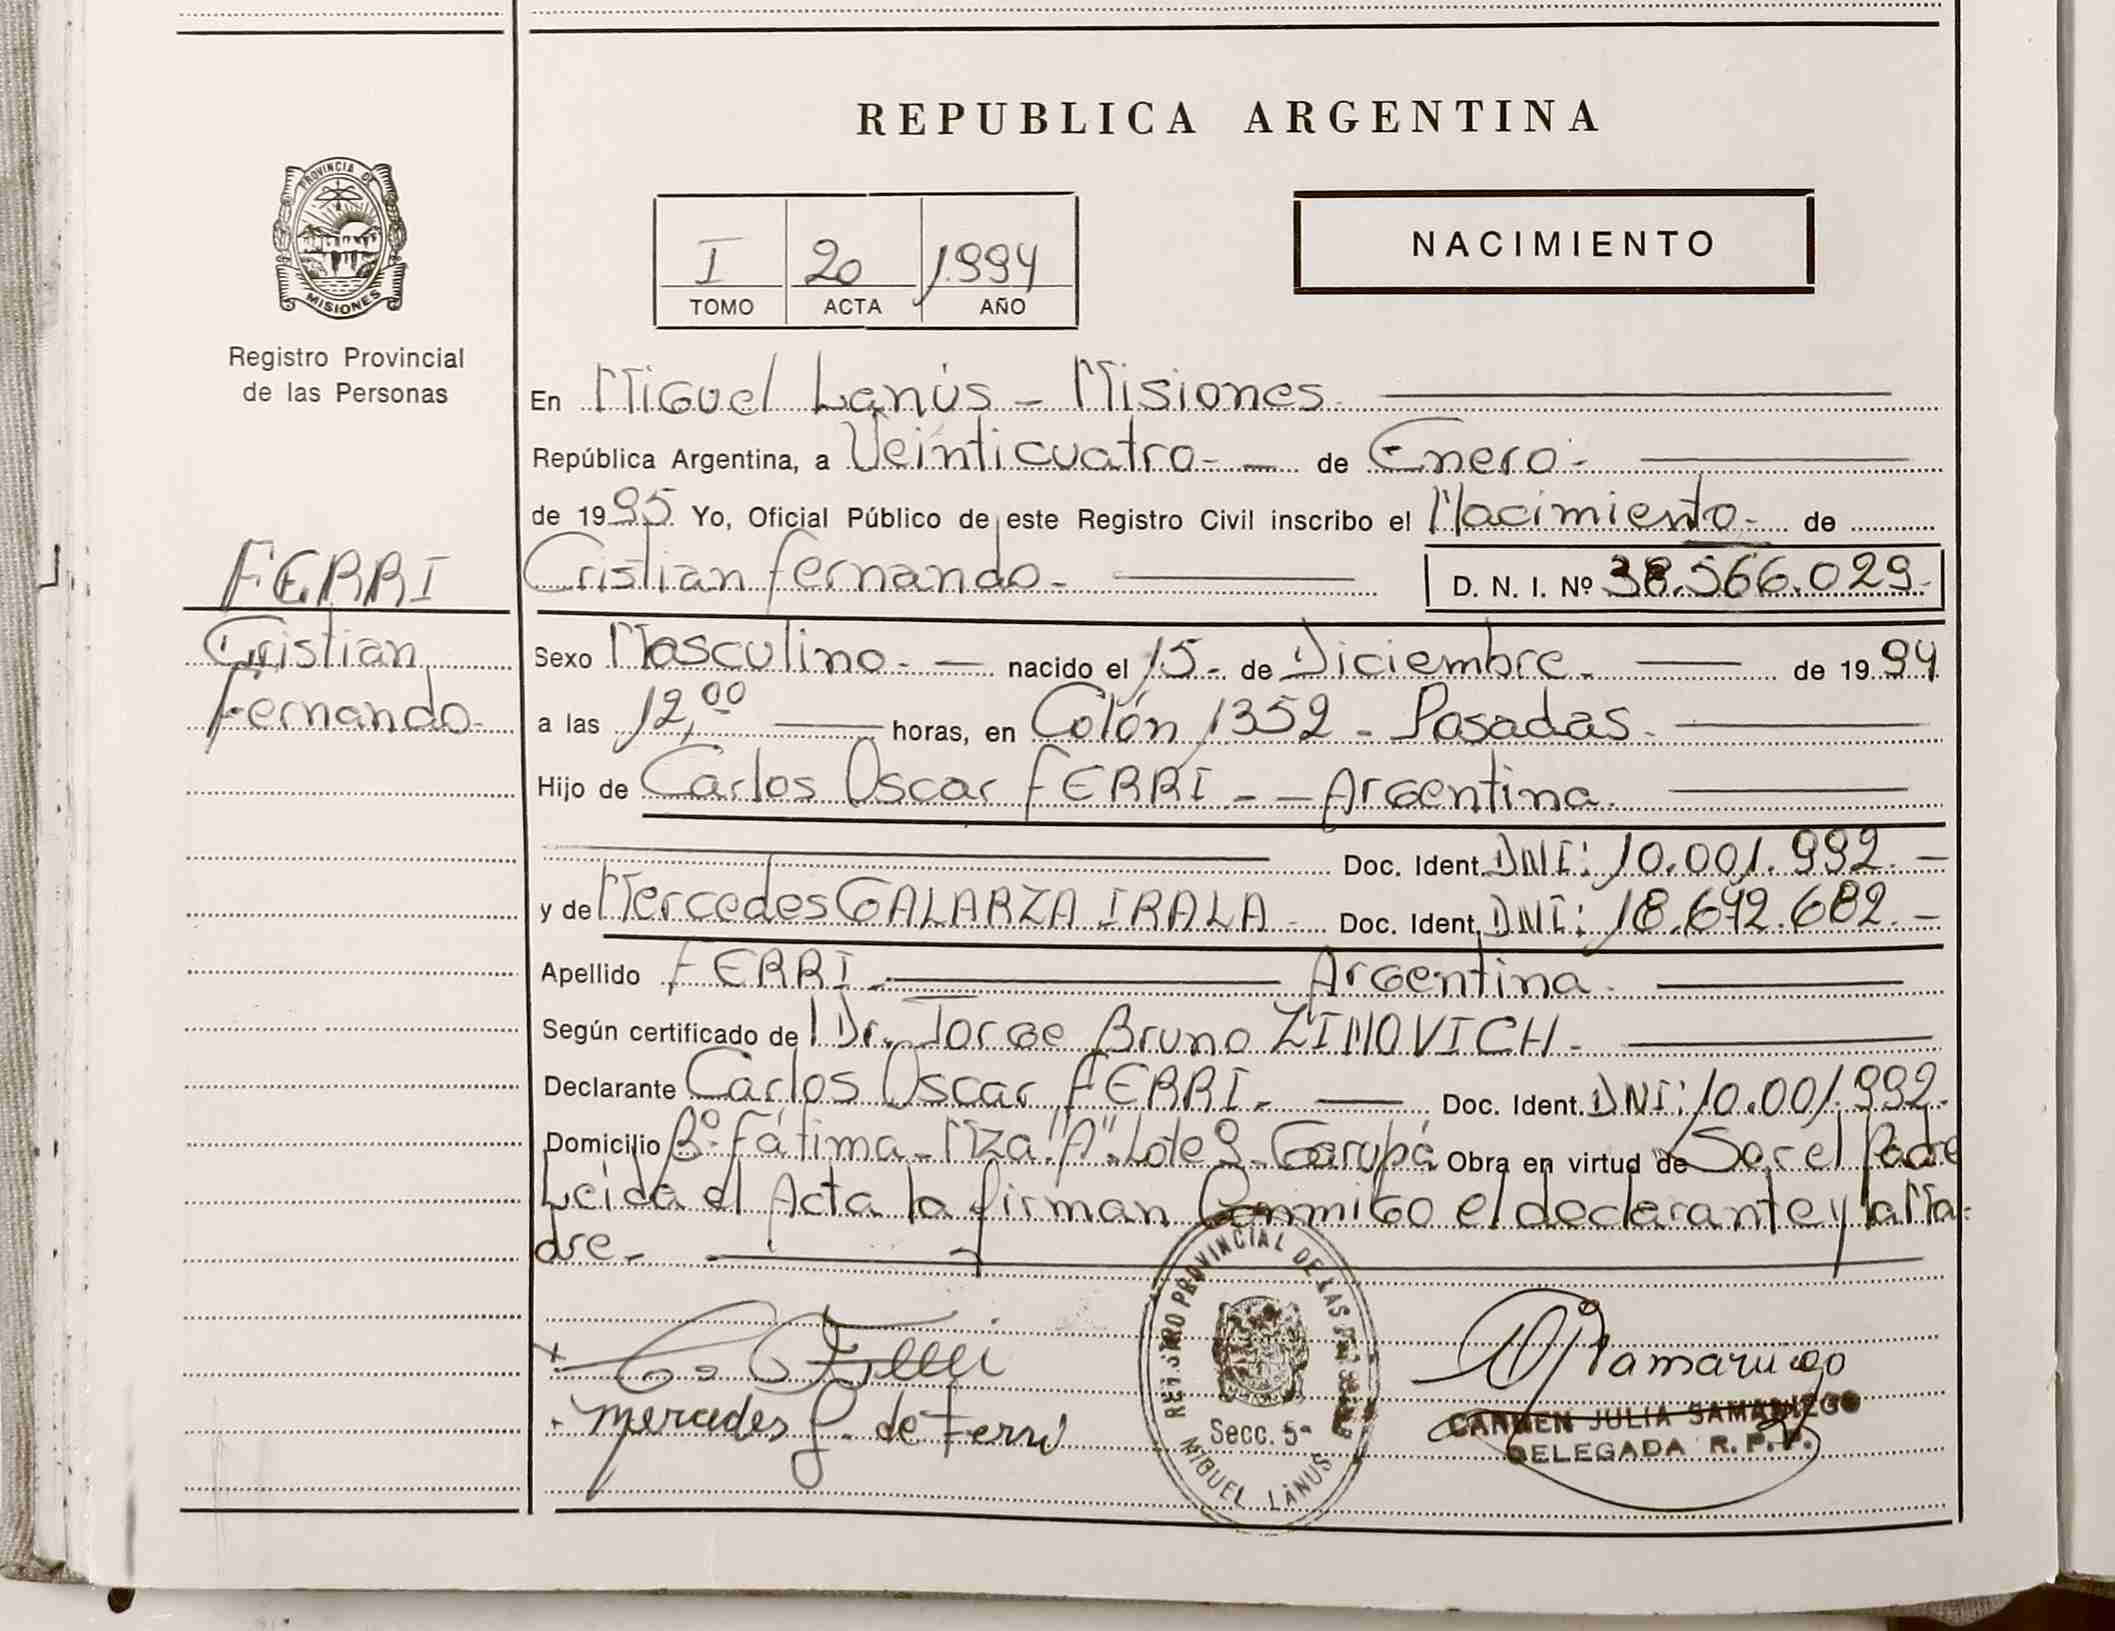 REPUBLICA ARGENTINA
PROVINCIA DE
MISIONES
Registro Provincial
de las Personas
I 20 1994
TOMO ACTA AÑO
NACIMIENTO
En Miguel Lanús - Misiones
República Argentina, a Veinticuatro - de Enero -
de 1995 Yo, Oficial Público de este Registro Civil inscribo el Nacimiento - de
FERRI
Cristian
Fernando.
Cristian Fernando -
D. N. I. Nº 38.566.029.
Sexo Masculino - nacido el 15 - de Diciembre - de 1994
a las 12,00 horas, en Colón 1352 - Posadas -
Hijo de Carlos Oscar FERRI - - Argentina -
Doc. Ident. DNI: 10.001.992. -
y de Mercedes GALARZA IRALA - Doc. Ident. DNI: 18.692.682. -
Apellido FERRI - Argentina -
Según certificado de Dr. Jorge Bruno ZIMOVICH -
Declarante Carlos Oscar FERRI - Doc. Ident. DNI: 10.001.992.
Domicilio Bº Fátima - Mza "A" Lote 9 - Garupá Obra en virtud de Ser el Padre
Leida el Acta la firman Conmigo el declarante y la Ma-
dre -
Mercedes G. de Ferri
REGISTRO PROVINCIAL DE LAS
Secc. 5ª
MIGUEL LANUS
CARMEN JULIA SAMANIEGO
DELEGADA R. P. P.